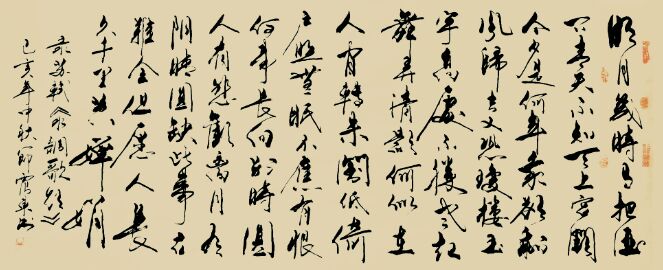 明月幾時有把酒
问青天不知天上宫闕
今夕是何年我欲乘
風歸去又恐瓊楼玉
宇高處不勝寒起
舞弄清影何似在
人间轉朱閣低綺
户照無眠不應有恨
何事長向别時圆
人有悲歡离合月有
陰晴圆缺此事古
難全但愿人長
久千里共嬋娟
录苏轼《水調歌頭》
己亥年中秋节